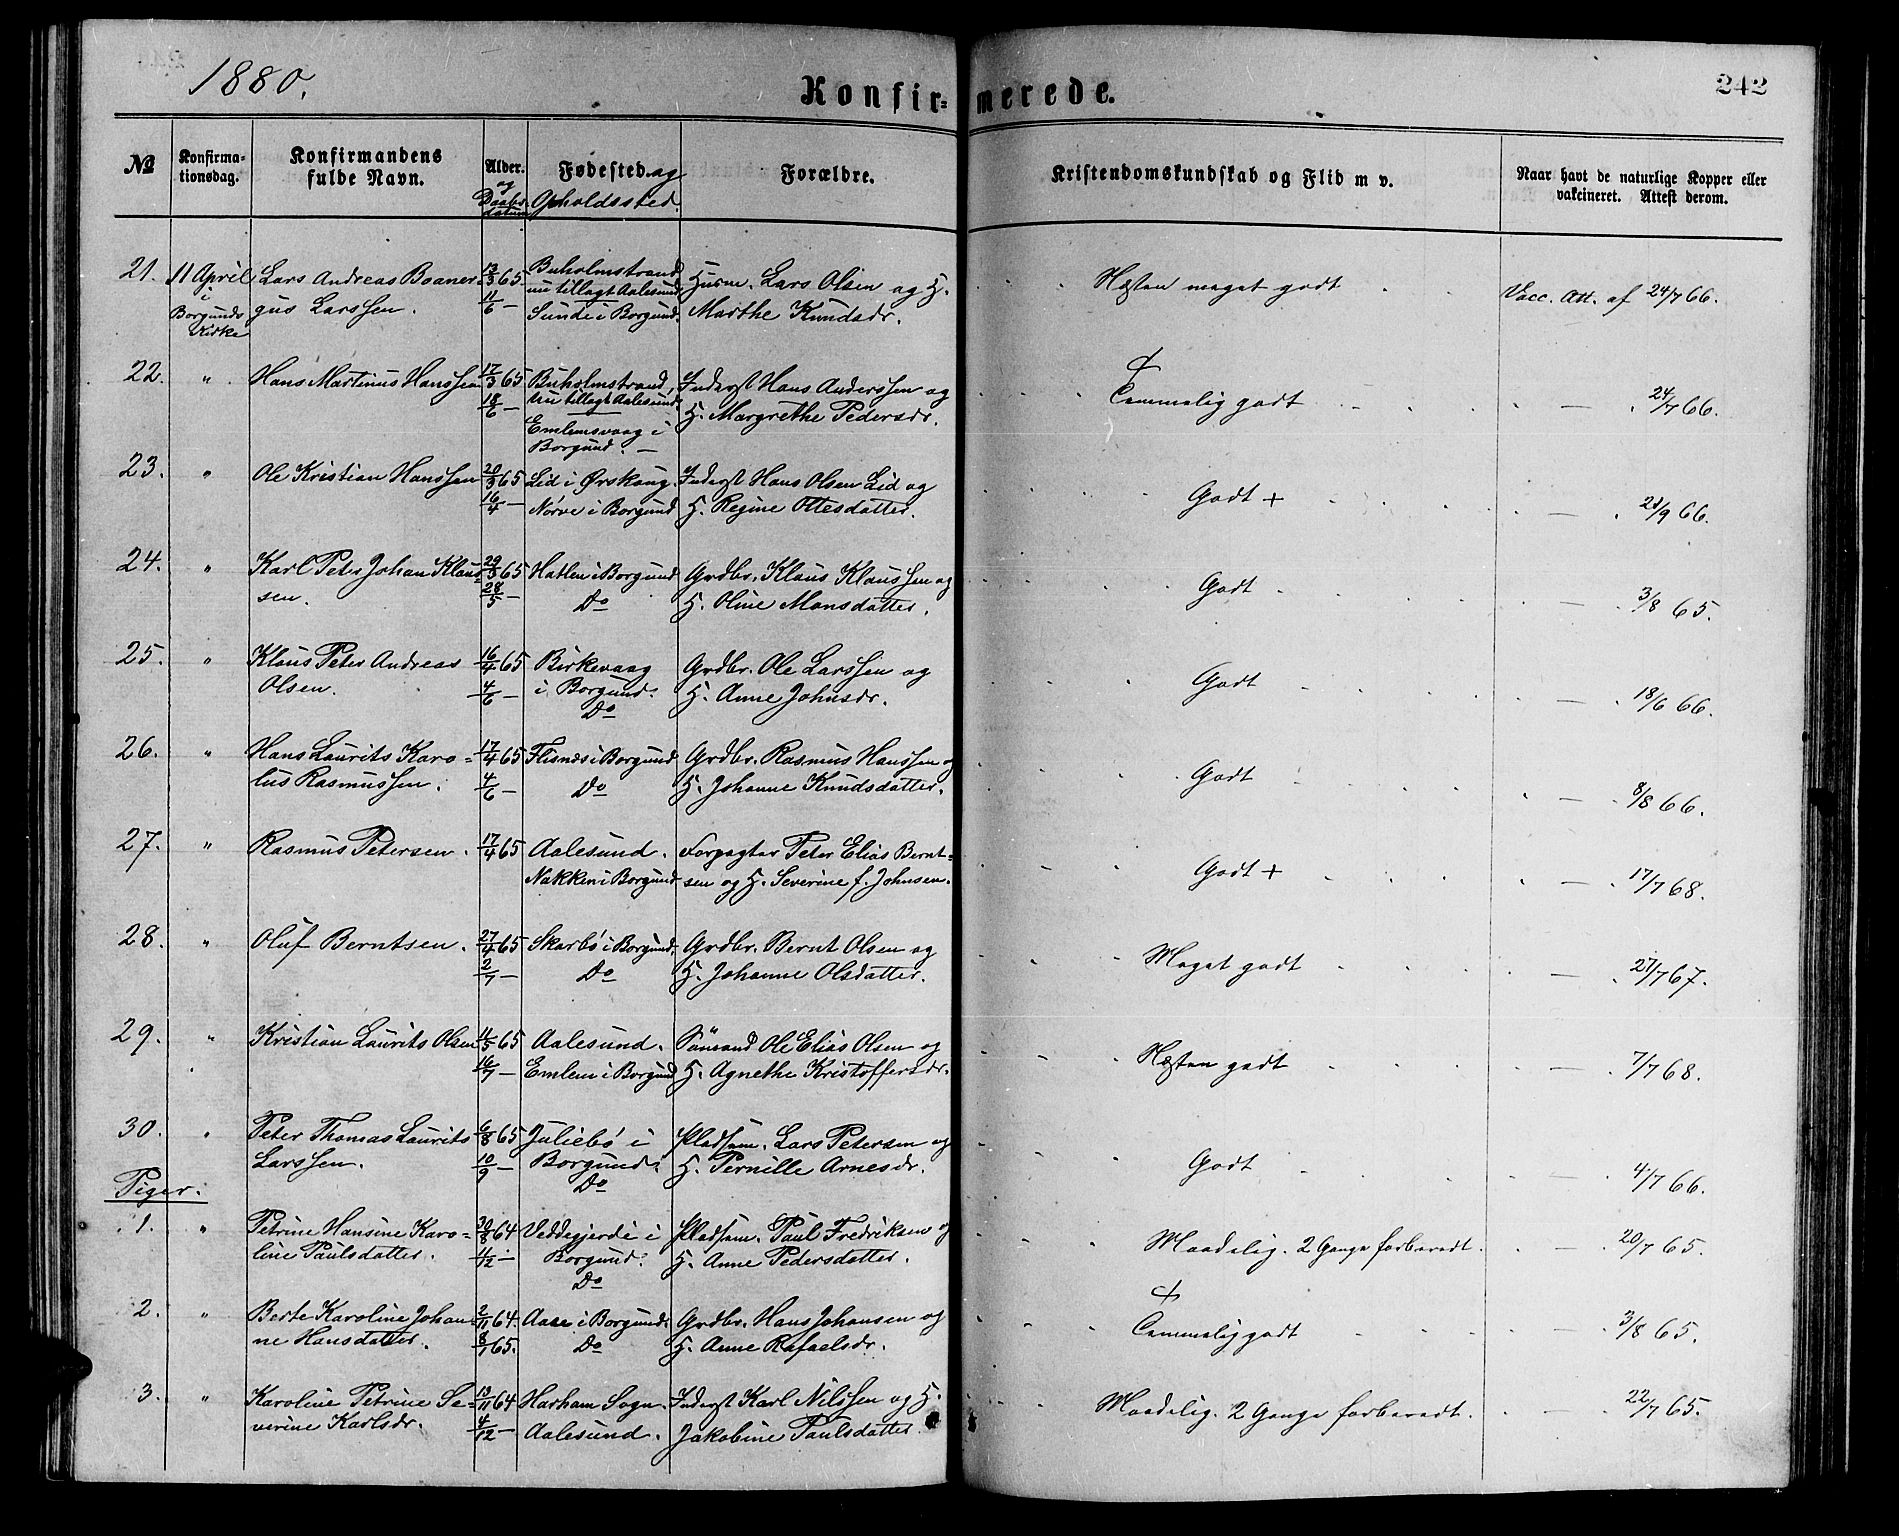 1880.
Konfirmerede.
242
№
Konfirma-
tionsdag.
Konfirmandens
fulde Navn.
Alder.
og
Daabs-
datum
Fødested og
Opholdssted.
Forældre.
Kristendomskundskab og Flid m v.
Naar havt de naturlige Kopper eller
vakcineret. Attest derom.
21. 11 April Lars Andreas Boaner- 13/3 65 Buholmstrand Husm. Lars Olsen og H. Næsten meget godt Vacc. Att. af 24/7 66.
i nu tillagt Aalesund
Borgunds gus Larssen. 11/6 — Sunde i Borgund. Marthe Knudsdr.
Kirke
22. " Hans Martinus Hanssen 17/3 65 Buholmstrand, Inderst Hans Anderssen og Temmelig godt — 24/7 66.
18/6 — nu tillagt Aalesund. H. Margrethe Pedersdr.
Emlemsvaag i
Borgund. —
23. " Ole Kristian Hanssen 20/3 65 Lid i Ørskoug. Inderst Hans Olsen Lid og Godt + — 21/9 66.
16/4 — Nørve i Borgund H. Regine Ottesdatter.
24. " Karl Peter Johan Klaus- 29/3 65 Hatlen i Borgund Grdbr. Klaus Klaussen og Godt — 3/8 65.
sen. 28/5 — Do H. Oline Monsdatter.
25. " Klaus Peter Andreas 16/4 65 Birkevaag Grdbr. Ole Larssen og Godt — 18/6 66.
Olsen. 4/6 — i Borgund. H. Anne Johnsdr.
Do
26. " Hans Laurits Karo- 17/4 65 Flisnæs i Borgund Grdbr. Rasmus Hanssen og Godt — 8/8 66.
lus Rasmussen. 4/6 — Do H. Johanne Knudsdatter.
27. " Rasmus Petersen. 17/4 65 Aalesund. Forpagter Peter Elias Bernt- Godt + — 17/7 68.
Nakken i Borgund sen og H. Severine f. Johnsen.
28. " Oluf Berntsen. 27/4 65 Skarbö i Borgund. Grdbr. Bernt Olsen og Meget godt — 27/7 67.
2/7 — Do H. Johanne Olsdatter.
29. " Kristian Laurits Olsen 11/5 65 Aalesund. Sömand Ole Elias Olsen og Næsten godt — 7/7 68.
16/7 — Emlem i Borgund H. Agnethe Kristoffersdr.
30. " Peter Thomas Laurits 6/8 65 Juliebö i Pladsem. Lars Petersen og Godt — 4/7 66.
Larssen. 10/9 — Borgund. H. Pernille Arnesdr.
Do
Piger.
1. " Petrine Hansine Karo- 30/8 64 Veddegjerde i Pladsem. Paul Fredriksen og Maadelig. 2 Gange forberedt. — 20/7 65.
line Paulsdatter. 11/12 — Borgund. H. Anne Pedersdatter.
Do
2. " Berte Karoline Johan- 2/11 64. Aase i Borgund. Grdbr. Hans Johansen og Temmelig godt — 3/8 65.
ne Hansdatter. 8/1 65. Do H. Anne Rafaelsdr.
3. " Karoline Petrine Se- 13/11 64 Harham Sogn. Inderst Karl Nilssen og H. Maadelig. 2 Gange forberedt. — 22/7 65.
verine Karlsdr. 4/12 — Aalesund. Jakobine Paulsdatter